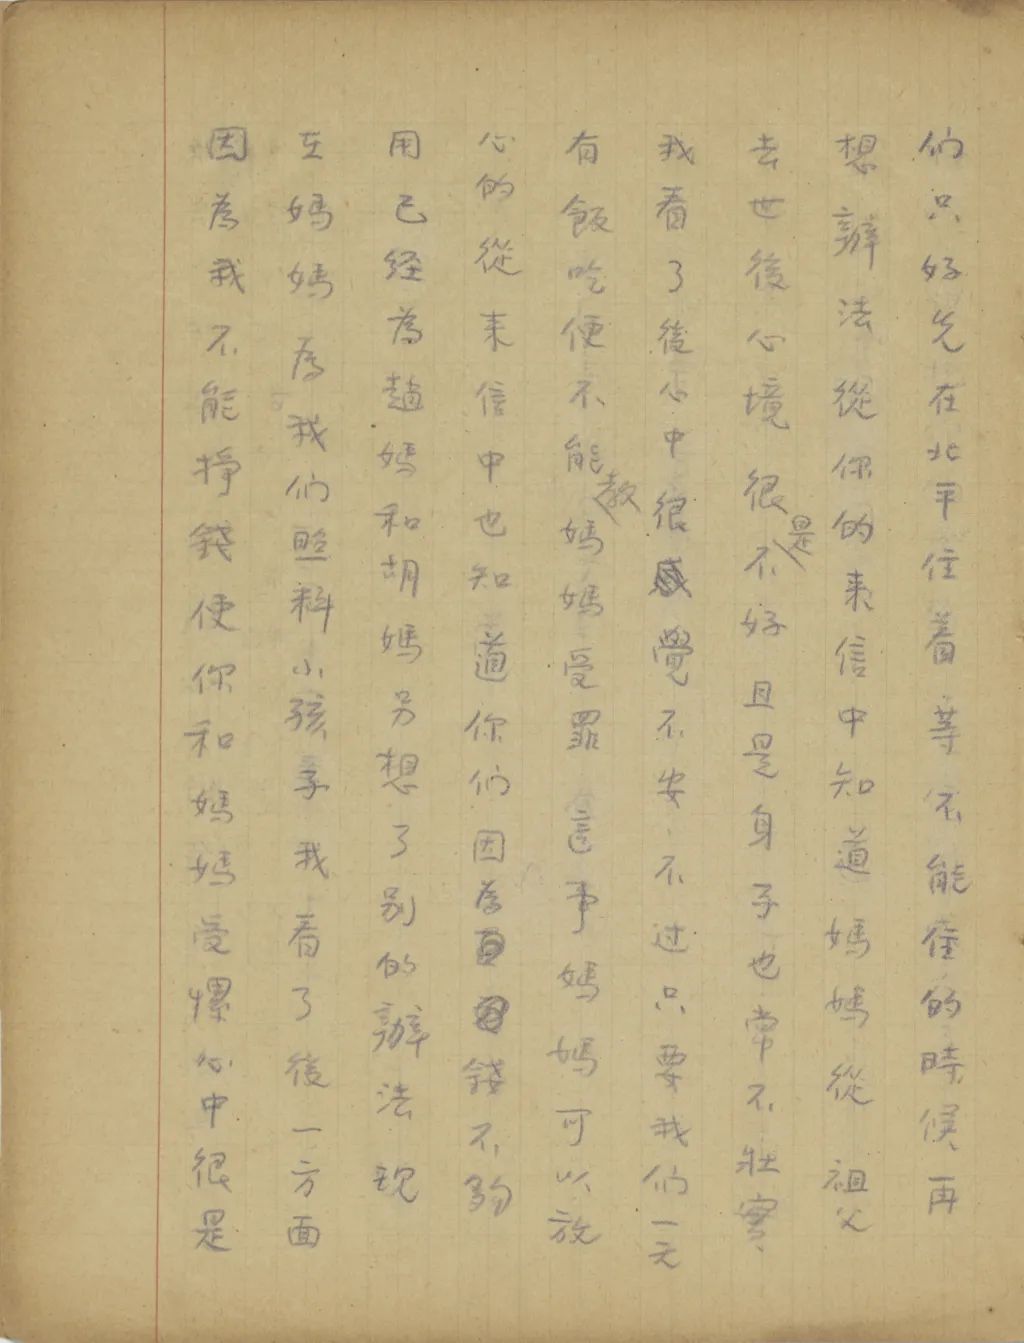 们只好先在北平住着等不能住的時候再
想辦法從你的来信中知道媽媽從祖父
去世後心境很是不好且是身子也常不壯實、
我看了後心中很覺不安、不过只要我们一天
有飯吃便不能教媽媽受罪這事媽媽可以放
心的從来信中也知道你们因為錢不夠
用已经為趙媽和胡媽另想了别的辦法現
在媽媽為我们照料小孩子我看了後一方面
因為我不能掙錢使你和媽媽受累心中很是